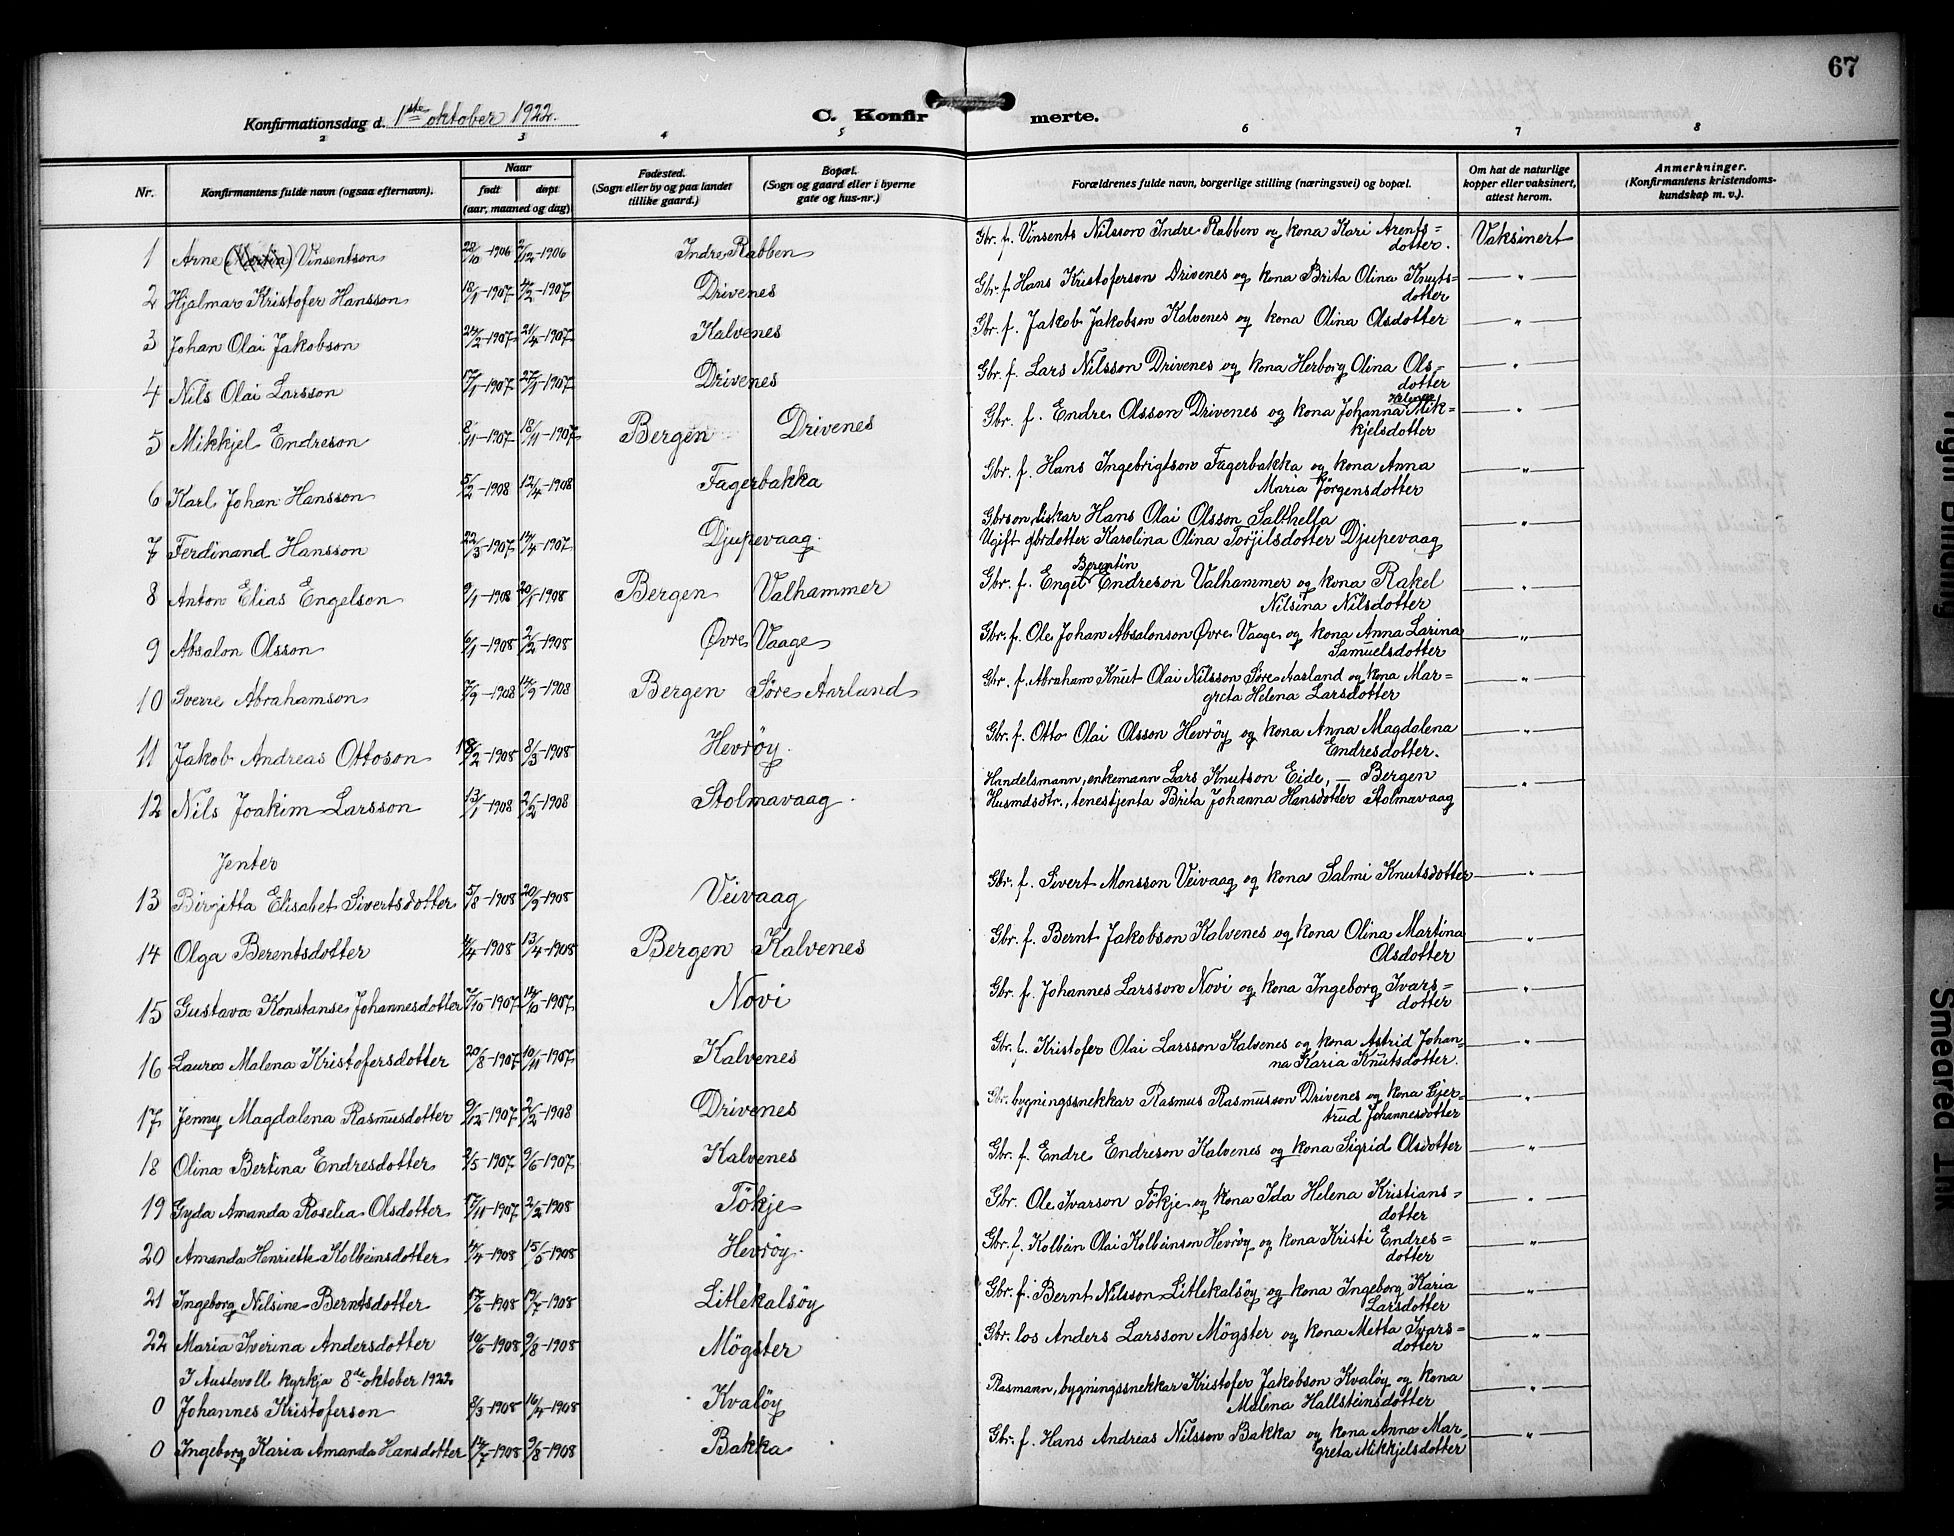 67
Konfirmationsdag d. 1ste oktober 1922.
C. Konfirmerte.
2 3 4 5 6 7 8
Nr.
Konfirmantens fulde navn (ogsaa efternavn).
Naar
født døpt
(aar, maaned og dag)
Fødested.
(Sogn eller by og paa landet
tillike gaard.)
Bopæl.
(Sogn og gaard eller i byerne
gate og hus-nr.)
Forældrenes fulde navn, borgerlige stilling (næringsvei) og bopæl.
Om hat de naturlige
kopper eller vaksinert,
attest herom.
Anmerkninger.
(Konfirmantens kristendoms-
kundskap m. v.).
1 Arne (Martin) Vinsentson 28/10-1906 2/12-1906 Indre Rabben Gbr. f. Vinsents Nilsson Indre Rabben og kona Kari Arents= Vaksinert
dotter.
2 Hjalmar Kristofer Hansson 18/1-1907 24/2-1907 Drivenes Gbr. f Hans Kristoferson Drivenes og kona Brita Olina Knuts= "
dotter
3 Johan Olai Jakobson 24/2-1907 21/4-1907 Kalvenes Gbr. f. Jakob Jakobson Kalvenes og kona Olina Olsdotter "
4 Nils Olai Larsson 17/1-1907 27/1-1907 Drivenes Gbr. f. Lars Nilsson Drivenes og kona Herborg Olina Ols= "
dotter
5 Mikkjel Endreson 8/11-1907 18/11-1907 Bergen Drivenes Gbr. f. Endre Olsson Drivenes og kona Johanna Helene Mik= "
kjelsdotter
6 Karl Johan Hansson 5/2-1908 12/4-1908 Fagerbakka Gbr. f. Hans Ingebrigtson Fagerbakka og kona Anna "
Maria Jörgensdotter
7 Ferdinand Hansson 22/3-1907 14/4-1907 Djupevaag. Gbrson, fiskar Hans Olai Olsson Salthella "
Ugift gbrdotter Karolina Olina Torjilsdotter Djupevaag
8 Anton Elias Engelson 9/1-1908 20/1-1908 Bergen Valhammer Gbr. f. Engel Berentin Endreson Valhammer og kona Rakel "
Nilsina Nilsdotter
9 Absalon Olsson 6/1-1908 2/2-1908 Øvre Vaage Gbr. f. Ole Johan Absalonson Øvre Vaage og kona Anna Larina "
Samuelsdotter
10 Sverre Abrahamson 7/9-1908 14/9-1908 Bergen Søre Aarland Gbr. f. Abraham Knut Olai Nilsson Søre Aasland og kona Mar= "
greta Helena Larsdotter
11 Jakob Andreas Ottoson 18/2-1908 8/3-1908 Hevröy. Gbr. f. Otto Olai Olsson Hevröy og kona Anna Magdalena "
Endresdotter.
12 Nils Joakim Larsson 13/1-1908 2/2-1908 Stolmavaag. Handelsmann, enkemann Lars Knutson Eide, — Bergen "
Husmdsdtr., tenestjenta Brita Johanna Hansdotter Stolmavaag
Jenter
13 Birgitta Elisabet Sivertsdotter 5/8-1908 20/9-1908 Veivaag Gbr. f. Sivert Monsson Veivaag og kona Salmi Knutsdotter "
14 Olga Berentsdotter 4/4-1908 13/4-1908 Bergen Kalvenes Gbr. f. Bernt Jakobson Kalvenes og kona Olina Martina "
Olsdotter
15 Gustava Konstanse Johannesdotter 7/10-1907 14/10-1907 Novi Gbr. f. Johannes Larsson Novi og kona Ingeborg Ivars= "
dotter
16 Laura Malena Kristofersdotter 20/8-1907 10/11-1907 Kalvenes Gbr. f. Kristofer Olai Larsson Kalvenes og kona Astrid Johan= "
na Karia Knutsdotter.
17 Jenny Magdalena Rasmusdotter 9/12-1907 2/2-1908 Drivenes Gbr. bygningssnekkar Rasmus Rasmusson Drivenes og kona Gjer= "
trud Johannesdotter
18 Olina Bertina Endresdotter 2/5-1907 9/6-1907 Kalvenes Gbr. f. Endre Endreson Kalvenes og kona Sigrid Olsdotter "
19 Gyda Amanda Roselia Olsdotter 17/11-1907 2/2-1908 Tökje Gbr. Ole Ivarson Tökje og kona Ida Helena Kristians= "
dotter
20 Amanda Henriette Kolbeinsdotter 4/4-1908 15/5-1908 Hevröy. Gbr. f. Kolbein Olai Kolbeinson Hevröy og kona Kristi Endres= "
dotter
21 Ingeborg Nilsine Berntsdotter 17/6-1908 19/7-1908 Litlekalsöy Gbr. f. Bernt Nilsson Litlekalsöy og kona Ingeborg Karia "
Larsdotter
22 Maria Iverina Andersdotter 10/6-1908 9/8-1908 Mögster Gbr. los Anders Larsson Mögster og kona Metta Ivars= "
dotter
I Austevoll kyrkja 8de oktober 1922
0 Johannes Kristoferson 8/3-1908 16/4-1908 Kvalöy Plasmann, bygningssnekkar Kristofer Jakobson Kvalöy og kona "
Malena Hallsteinsdotter
0 Ingeborg Karia Amanda Hansdotter 14/7-1908 9/8-1908 Bakka Gbr. f. Hans Andreas Nilsson Bakka og kona Anna Mar= "
greta Mikkjelsdotter
Tight Binding
Smeared Ink